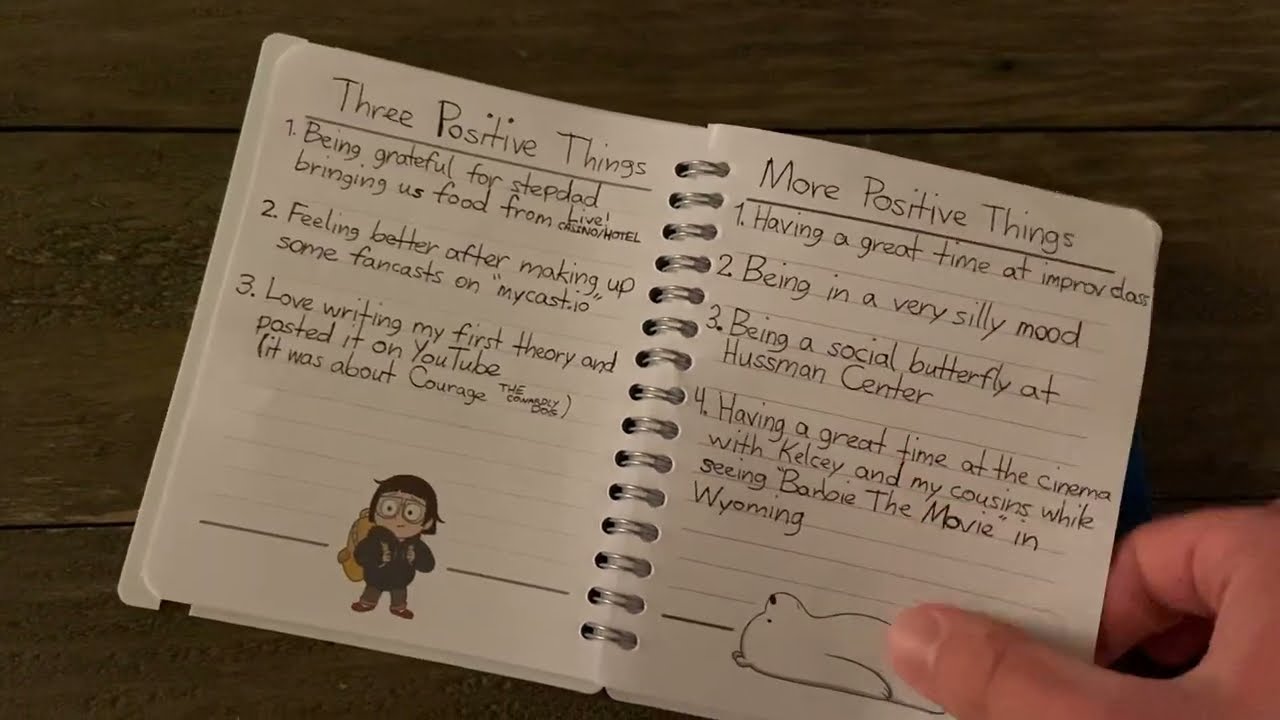 Three Positive Things
1. Being grateful for stepdad
bringing us food from Live!
CASINO/HOTEL
2. Feeling better after making up
some fancasts on "mycast.io"
3. Love writing my first theory and
posted it on YouTube
(it was about Courage THE
COWARDLY
DOG)
More Positive Things
1. Having a great time at improv class
2. Being in a very silly mood
3. Being a social butterfly at
Hussman Center
4. Having a great time at the cinema
with Kelcey and my cousins while
seeing "Barbie The Movie" in
Wyoming